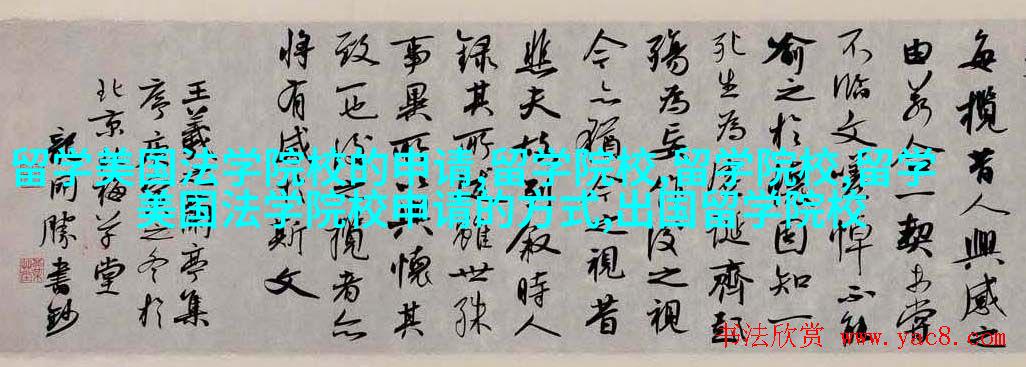 每攬昔人興感之
由若合一契未嘗
不臨文嗟悼不能
喻之於懷固知一
死生為虛誕齊彭
殤為妄作後之視
今亦猶今之視昔
悲夫故列敘時人
錄其所述雖世殊
事異所以興懷其
致一也後之攬者亦
將有感於斯文
王羲之蘭亭集
序之冬於
北京草堂
同勝書鈔
留学美国法学院校的申请,留学院校,留学院校,留学
美国法学院校申请的方式,出国留学院校
书法欣赏 www.yac8.com